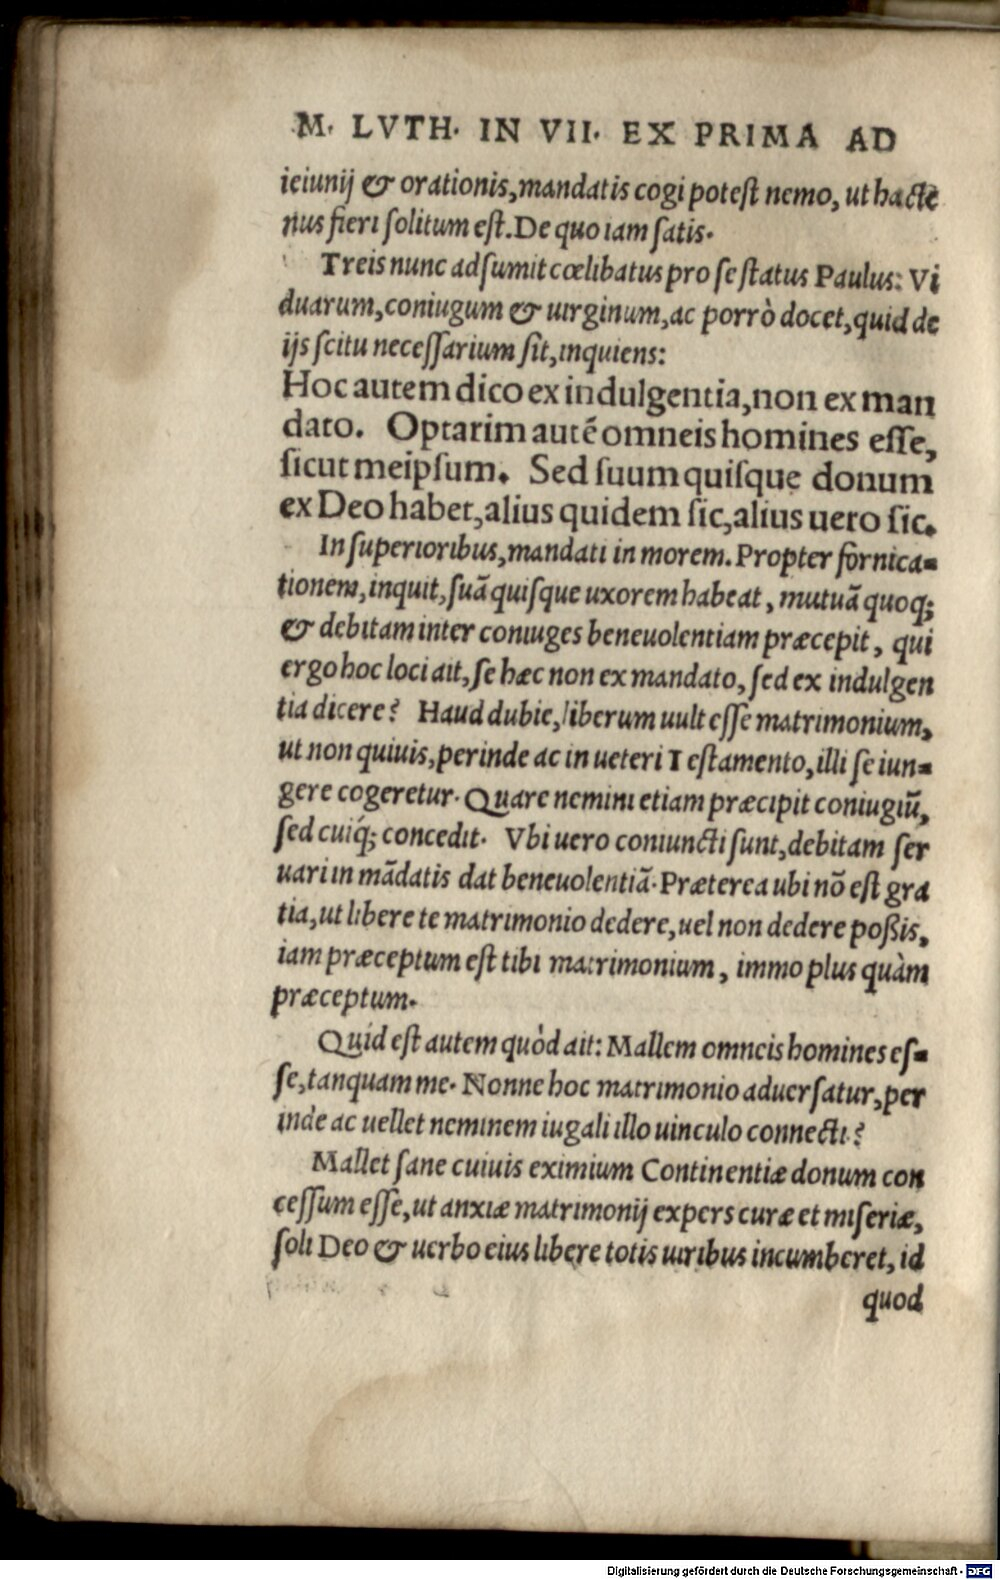 M. LVTH. IN VII. EX PRIMA AD
ieiunij & orationis, mandatis cogi potest nemo, ut hactē
nus fieri solitum est. De quo iam satis.
Treis nunc adsumit cœlibatus pro se status Paulus: Vi
duarum, coniugum & uirginum, ac porrò docet, quid de
ijs scitu necessarium sit, inquiens:
Hoc autem dico ex indulgentia, non ex man
dato. Optarim autē omneis homines esse,
sicut meipsum. Sed suum quisque donum
ex Deo habet, alius quidem sic, alius uero sic.
In superioribus, mandati in morem. Propter fornica=
tionem, inquit, suā quisque uxorem habeat, mutuā quoq;
& debitam inter coniuges beneuolentiam præcepit, qui
ergo hoc loci ait, se hæc non ex mandato, sed ex indulgen
tia dicere? Haud dubie, liberum uult esse matrimonium,
ut non quiuis, perinde ac in ueteri Testamento, illi se iun=
gere cogeretur. Quare nemini etiam præcipit coniugiū,
sed cuiq́; concedit. Vbi uero coniuncti sunt, debitam ser
uari in mādatis dat beneuolentiā. Præterea ubi nō est gra
tia, ut libere te matrimonio dedere, uel non dedere poßis,
iam præceptum est tibi matrimonium, immo plus quàm
præceptum.
Quid est autem quòd ait: Mallem omneis homines es=
se, tanquam me. Nonne hoc matrimonio aduersatur, per
inde ac uellet neminem iugali illo uinculo connecti?
Mallet sane cuiuis eximium Continentiæ donum con
cessum esse, ut anxiæ matrimonij expers curæ et miseriæ,
soli Deo & uerbo eius libere totis uiribus incumberet, id
quod
Digitalisierung gefördert durch die Deutsche Forschungsgemeinschaft - DFG